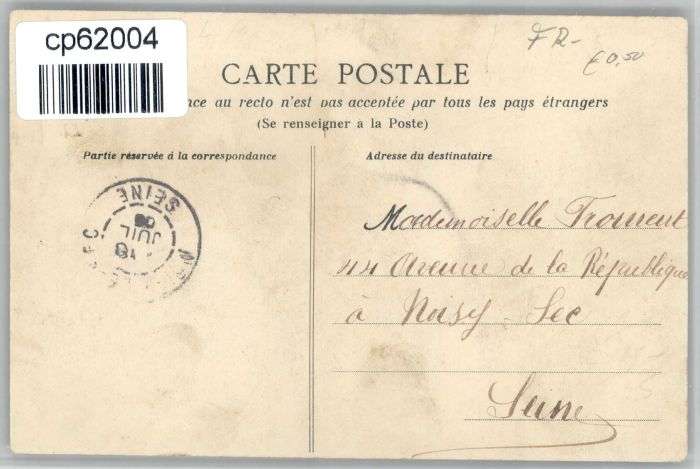 cp62004
FR-
€0,50
CARTE POSTALE
nce au recto n'est pas acceptée par tous les pays étrangers
(Se renseigner a la Poste)
Partie réservée á la correspondance
Adresse du destinataire
SEINE
JUIL
Mademoiselle Froment
44 Avenue de la République
à Noisy-Sec
Seine